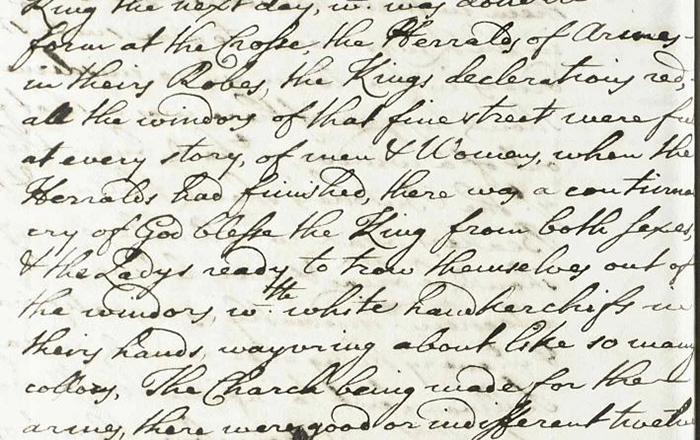 King the next day, wc. was done in
form at the Crosse, the Herralds of Armes
in theirs Robes, the Kings declarations red,
all the windors of that fine street were fu
at every story, of men & Women, when the
Herralds had finished, there was a continua
cry of God blesse the King from both sexes,
& the Ladys ready to trow themselves out of
the windors, wth. white handkerchifs in
theirs hands, wayvring about like so many
collors, The Charch being made for the
armes, there were good or indifferent twelve